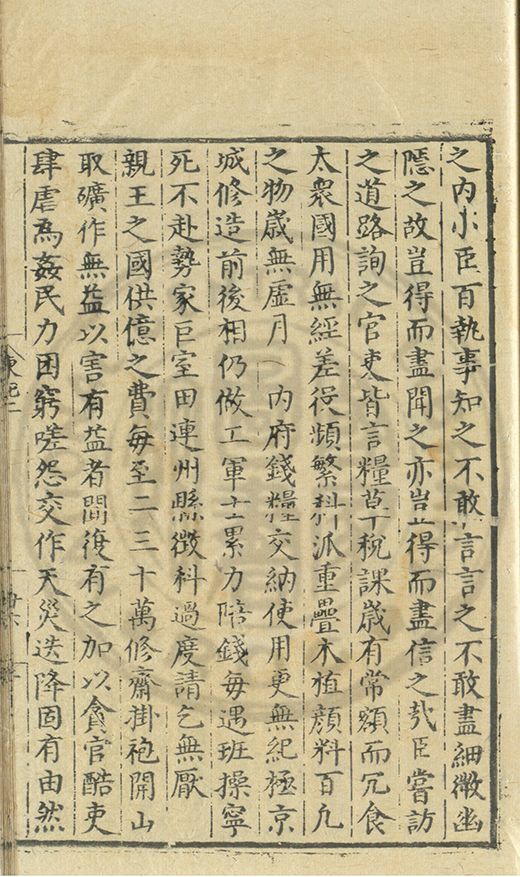 之內小臣百執事知之不敢言言之不敢盡細微幽
隱之故豈得而盡聞之亦豈得而盡信之㢤臣嘗訪
之道路詢之官吏皆言糧草稅課歲有常額而冗食
太衆國用無經差役頻繁科派重疊木植顔料百凡
之物歲無虛月內府錢糧交納使用更無紀極京
城修造前後相仍做工軍士累力陪錢每遇班操寧
死不赴勢家巨室田連州縣徵科過度請乞無厭
親王之國供億之費每至二三十萬修齋掛袍開山
取礦作無益以害有益者間復有之加以貪官酷吏
肆虐為姦民力困窮嗟怨交作天災迭降固有由然